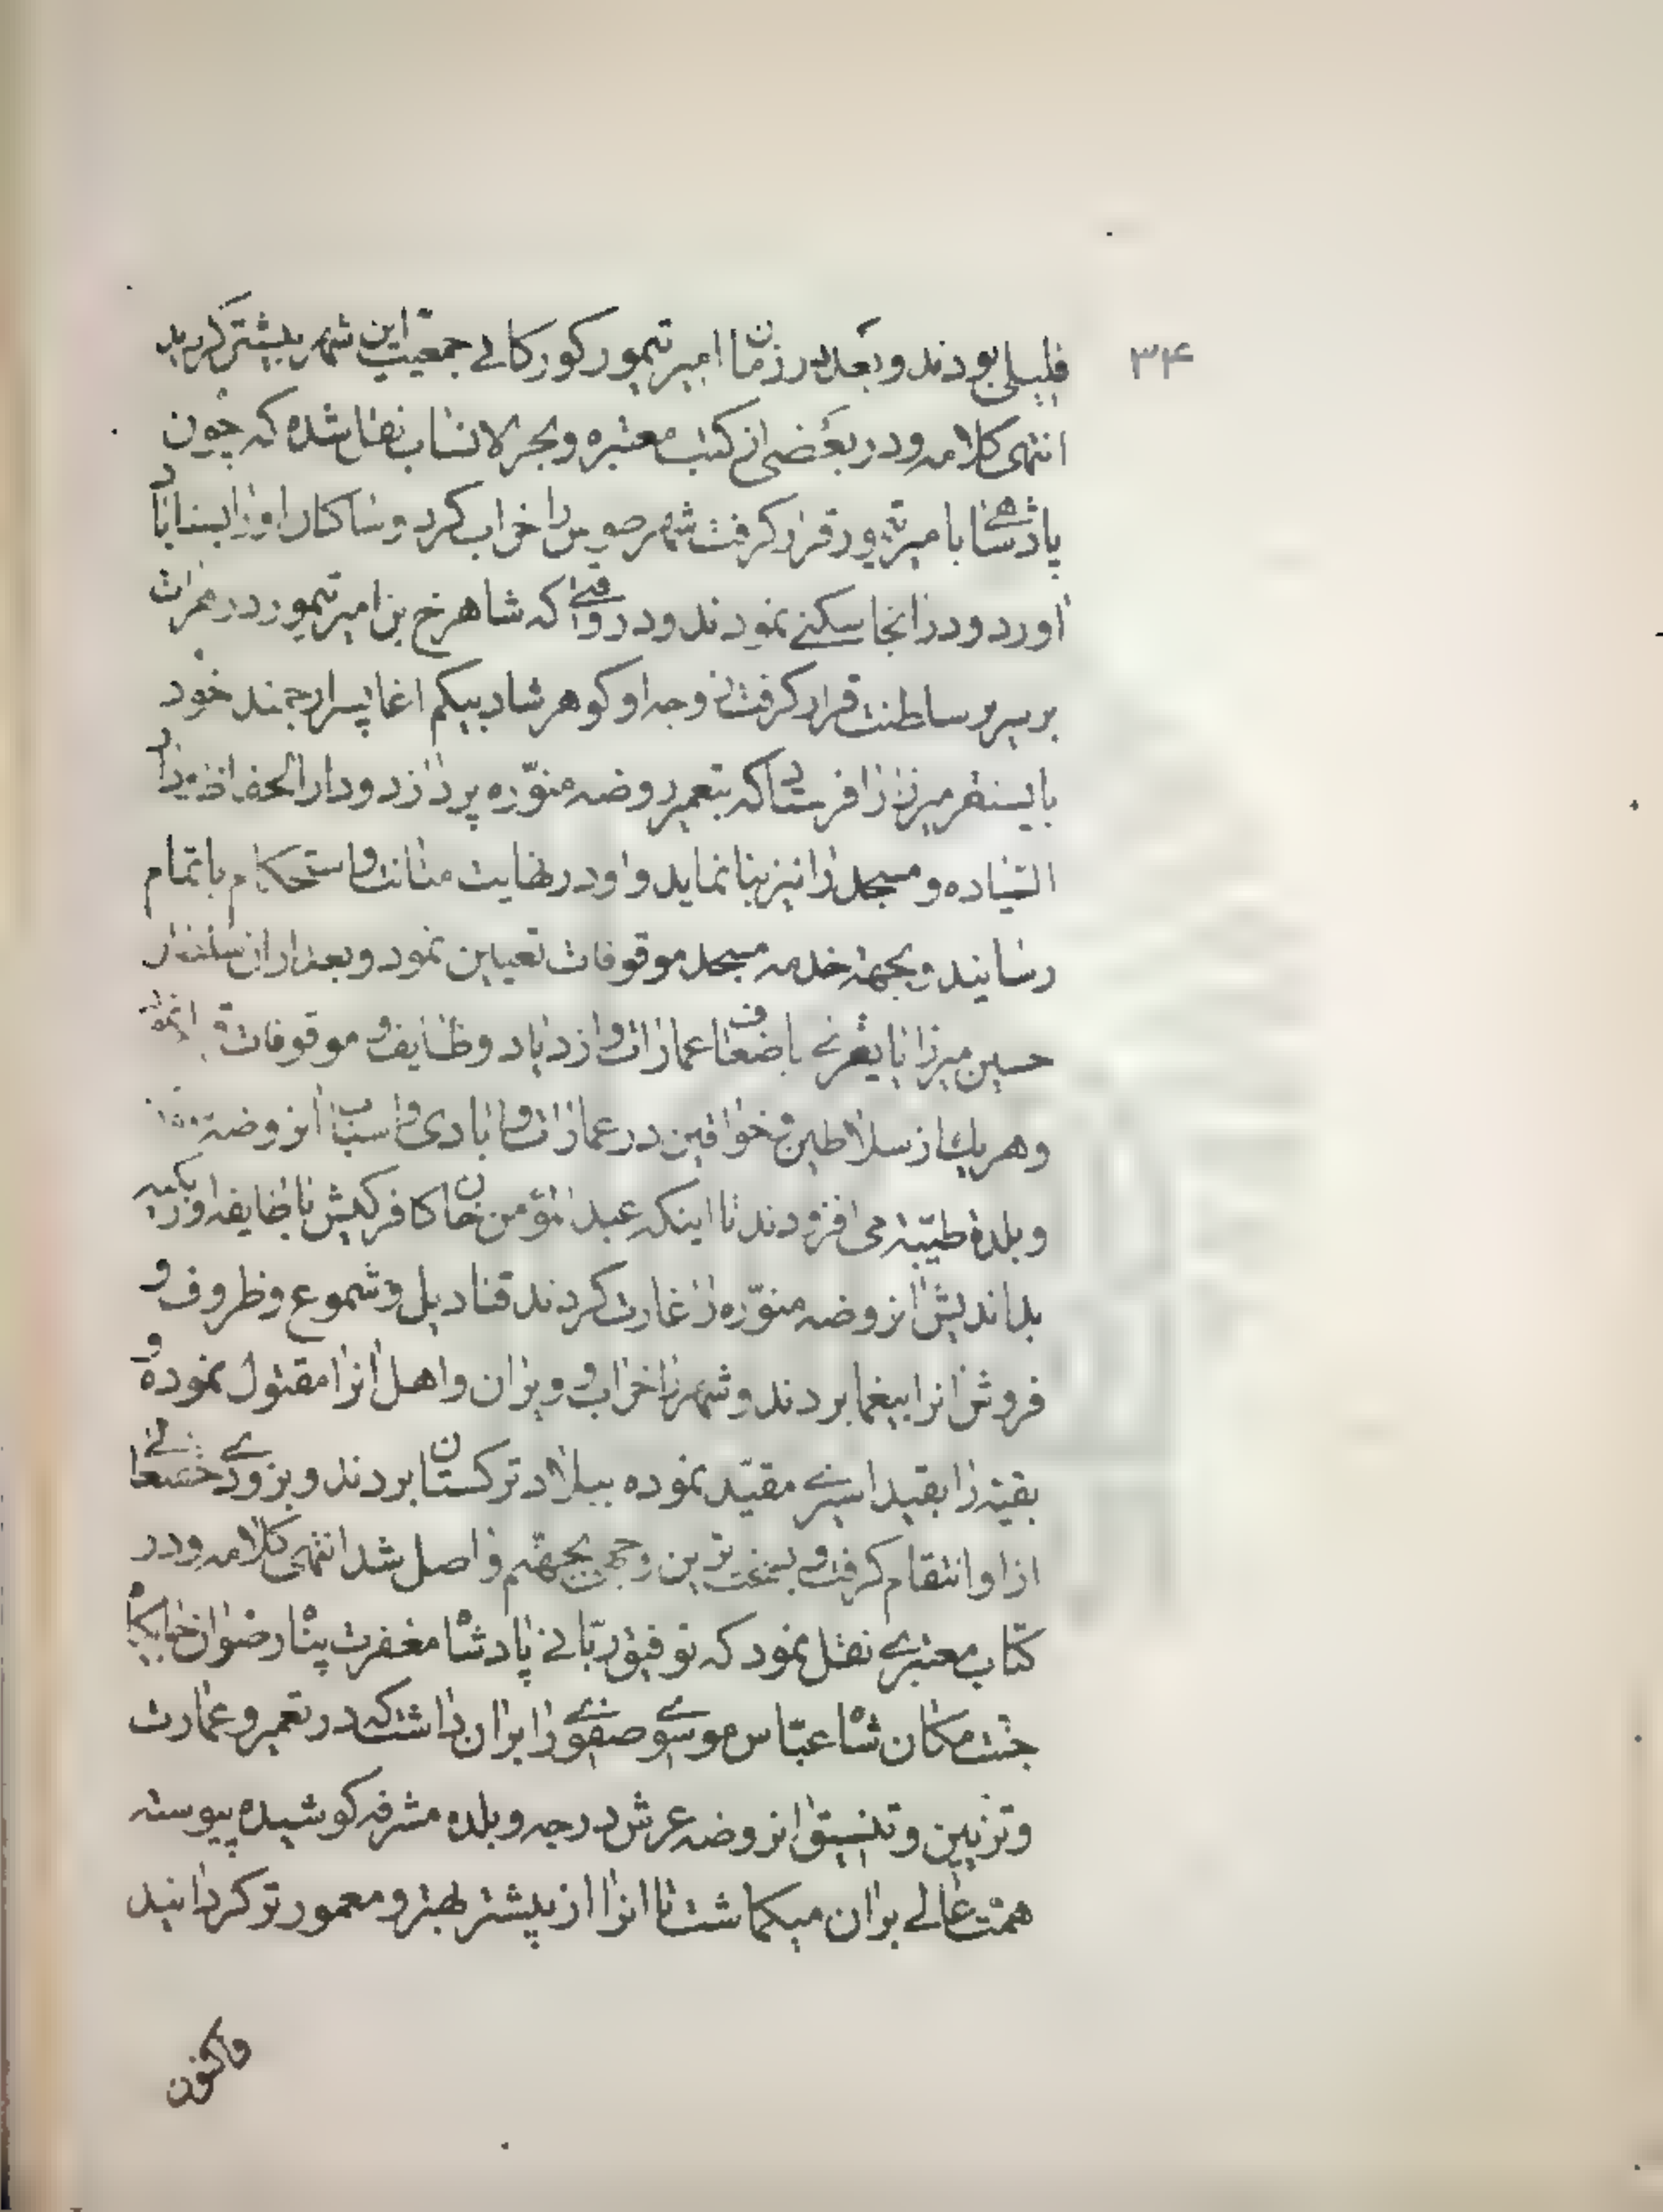 ۳۴
قلیلی بودند و بعد در زمان امیر تیمور کورکانے جمعیت این شهر بیشتر کردید
انتهی کلامه و در بعضی از کتب معتبره و بحر الانساب نقل شده که چون
پادشاهے بامیر تیمور قرار کرفت شهر را خراب کرد و ساکنان او را
آورد و در آنجا سکنے نمودند و در که شاهرخ بن امیر تیمور در هرات
بر سریر سلطنت قرار کرفت زوجه او کوهر شاد بیکم آغا پسر ارجمند خود
بایسنقر میرزا را فرستاد که بتعمیر روضه منوّره پردازد و دار الحفاظ و دار
السّیاده و مسجد را نیز بنا نماید و او در نهایت متانت و استحکام باتمام
رسانید و بجهة خدمه مسجد موقوفات تعیین نمود و بعد از ان سلطان
حسین میرزا بایقرا باضعاف عمارات و ازدیاد وظایف و موقوفات
و هر یك از سلاطین و خواقین در عمارات و آبادی و اسباب آن روضه
و بلدهٔ طیّبه می افزودند تا اینکه عبد المؤمن خان کافر کیش با طایفه اوزبکیه
بد اندیش آن روضه منوّره را غارت کردند قنادیل و شموع و ظروف و
فروش آنرا بیغما بردند و شهر را خراب و ویران و اهل آنرا مقتول نموده و
بقیّه را بقید اسیرے مقیّد نموده ببلاد ترکستان بردند و بزودے
از او انتقام کرفت و بجهنّم واصل شد انتهی کلامه و در
کتاب معتبرے نقل نمود که توفیق ربّانے پادشاه مغفرت پناه رضوان جایکاه
جنّت مکان شاه عبّاس موسوے صفوے را بر آن داشت که در تعمیر و عمارت
و تزیین و تنسیق آن روضه عرش درجه و بلده مشرفه کوشیده پیوسته
همّت عالے بر آن میکماشت تا آنرا از پیشتر بهتر و معمورتر کردانید
واکنون